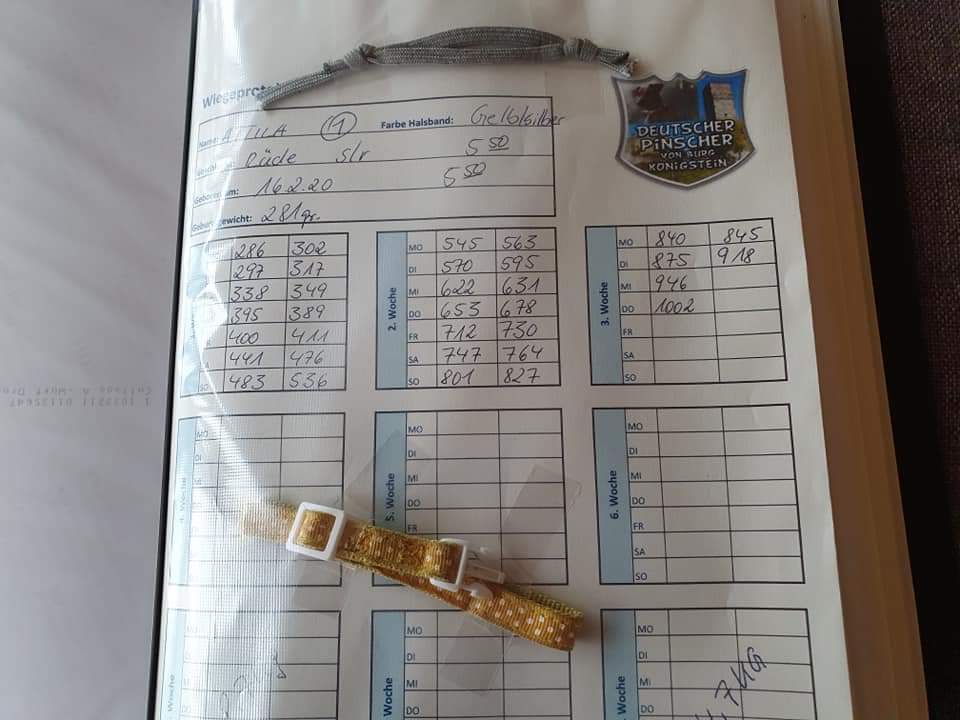 Wiegeprotok
Name: ATTILA 1 Farbe Halsband: Gelb/silber
Rüde slr 5 50
Geboren am: 16.2.20 5 50
Geburtsgewicht: 281gr.
DEUTSCHER
PINSCHER
VON BURG
KÖNIGSTEIN
286 302
297 317
338 349
395 389
400 411
SA 441 476
SO 483 536
2. Woche
MO 545 563
DI 570 595
MI 622 631
DO 653 678
FR 712 730
SA 747 764
SO 801 827
3. Woche
MO 840 845
DI 875 918
MI 946
DO 1002
FR
SA
SO
Woche
MO
DI
MI
5. Woche
MO
DI
MI
DO
FR
6. Woche
MO
DI
MI
DO
FR
SA
SO
Woche
Woche
MO
DI
MI
DO
Woche
MO
DI
MI
DO
7KG